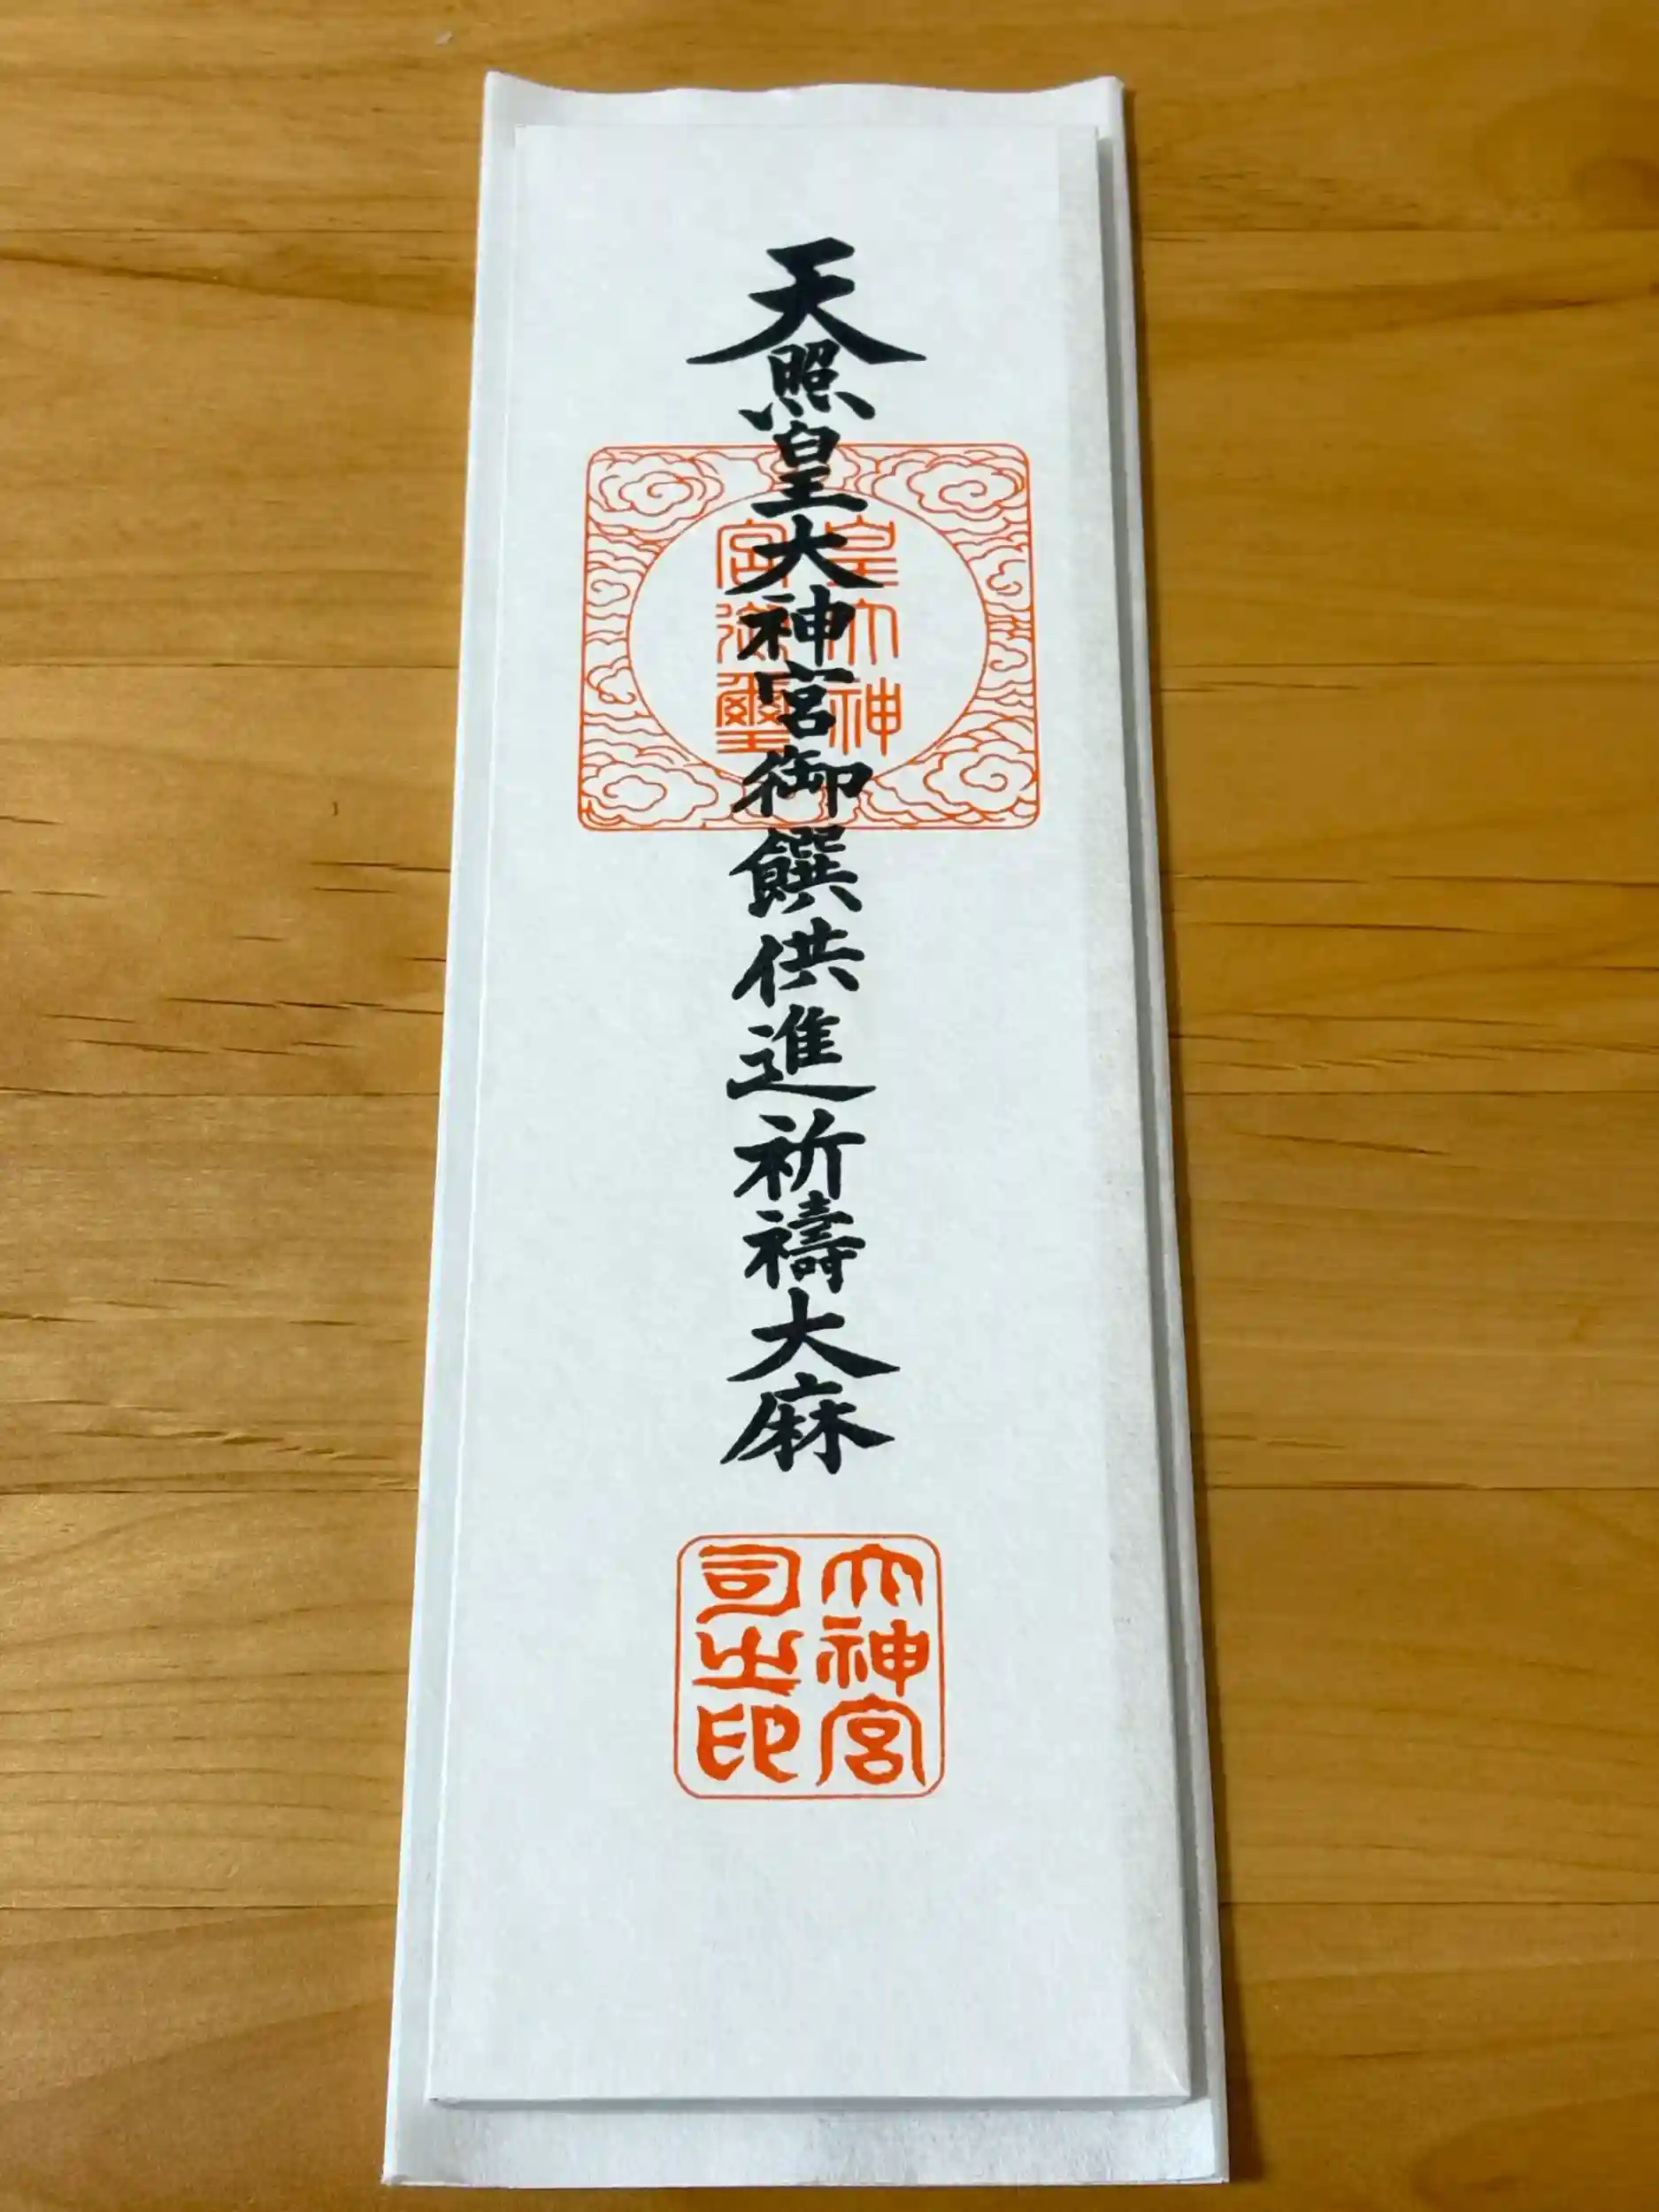 天照皇大神宮御饌供進祈禱大麻
皇大神
宮御璽
大神宮
司之印